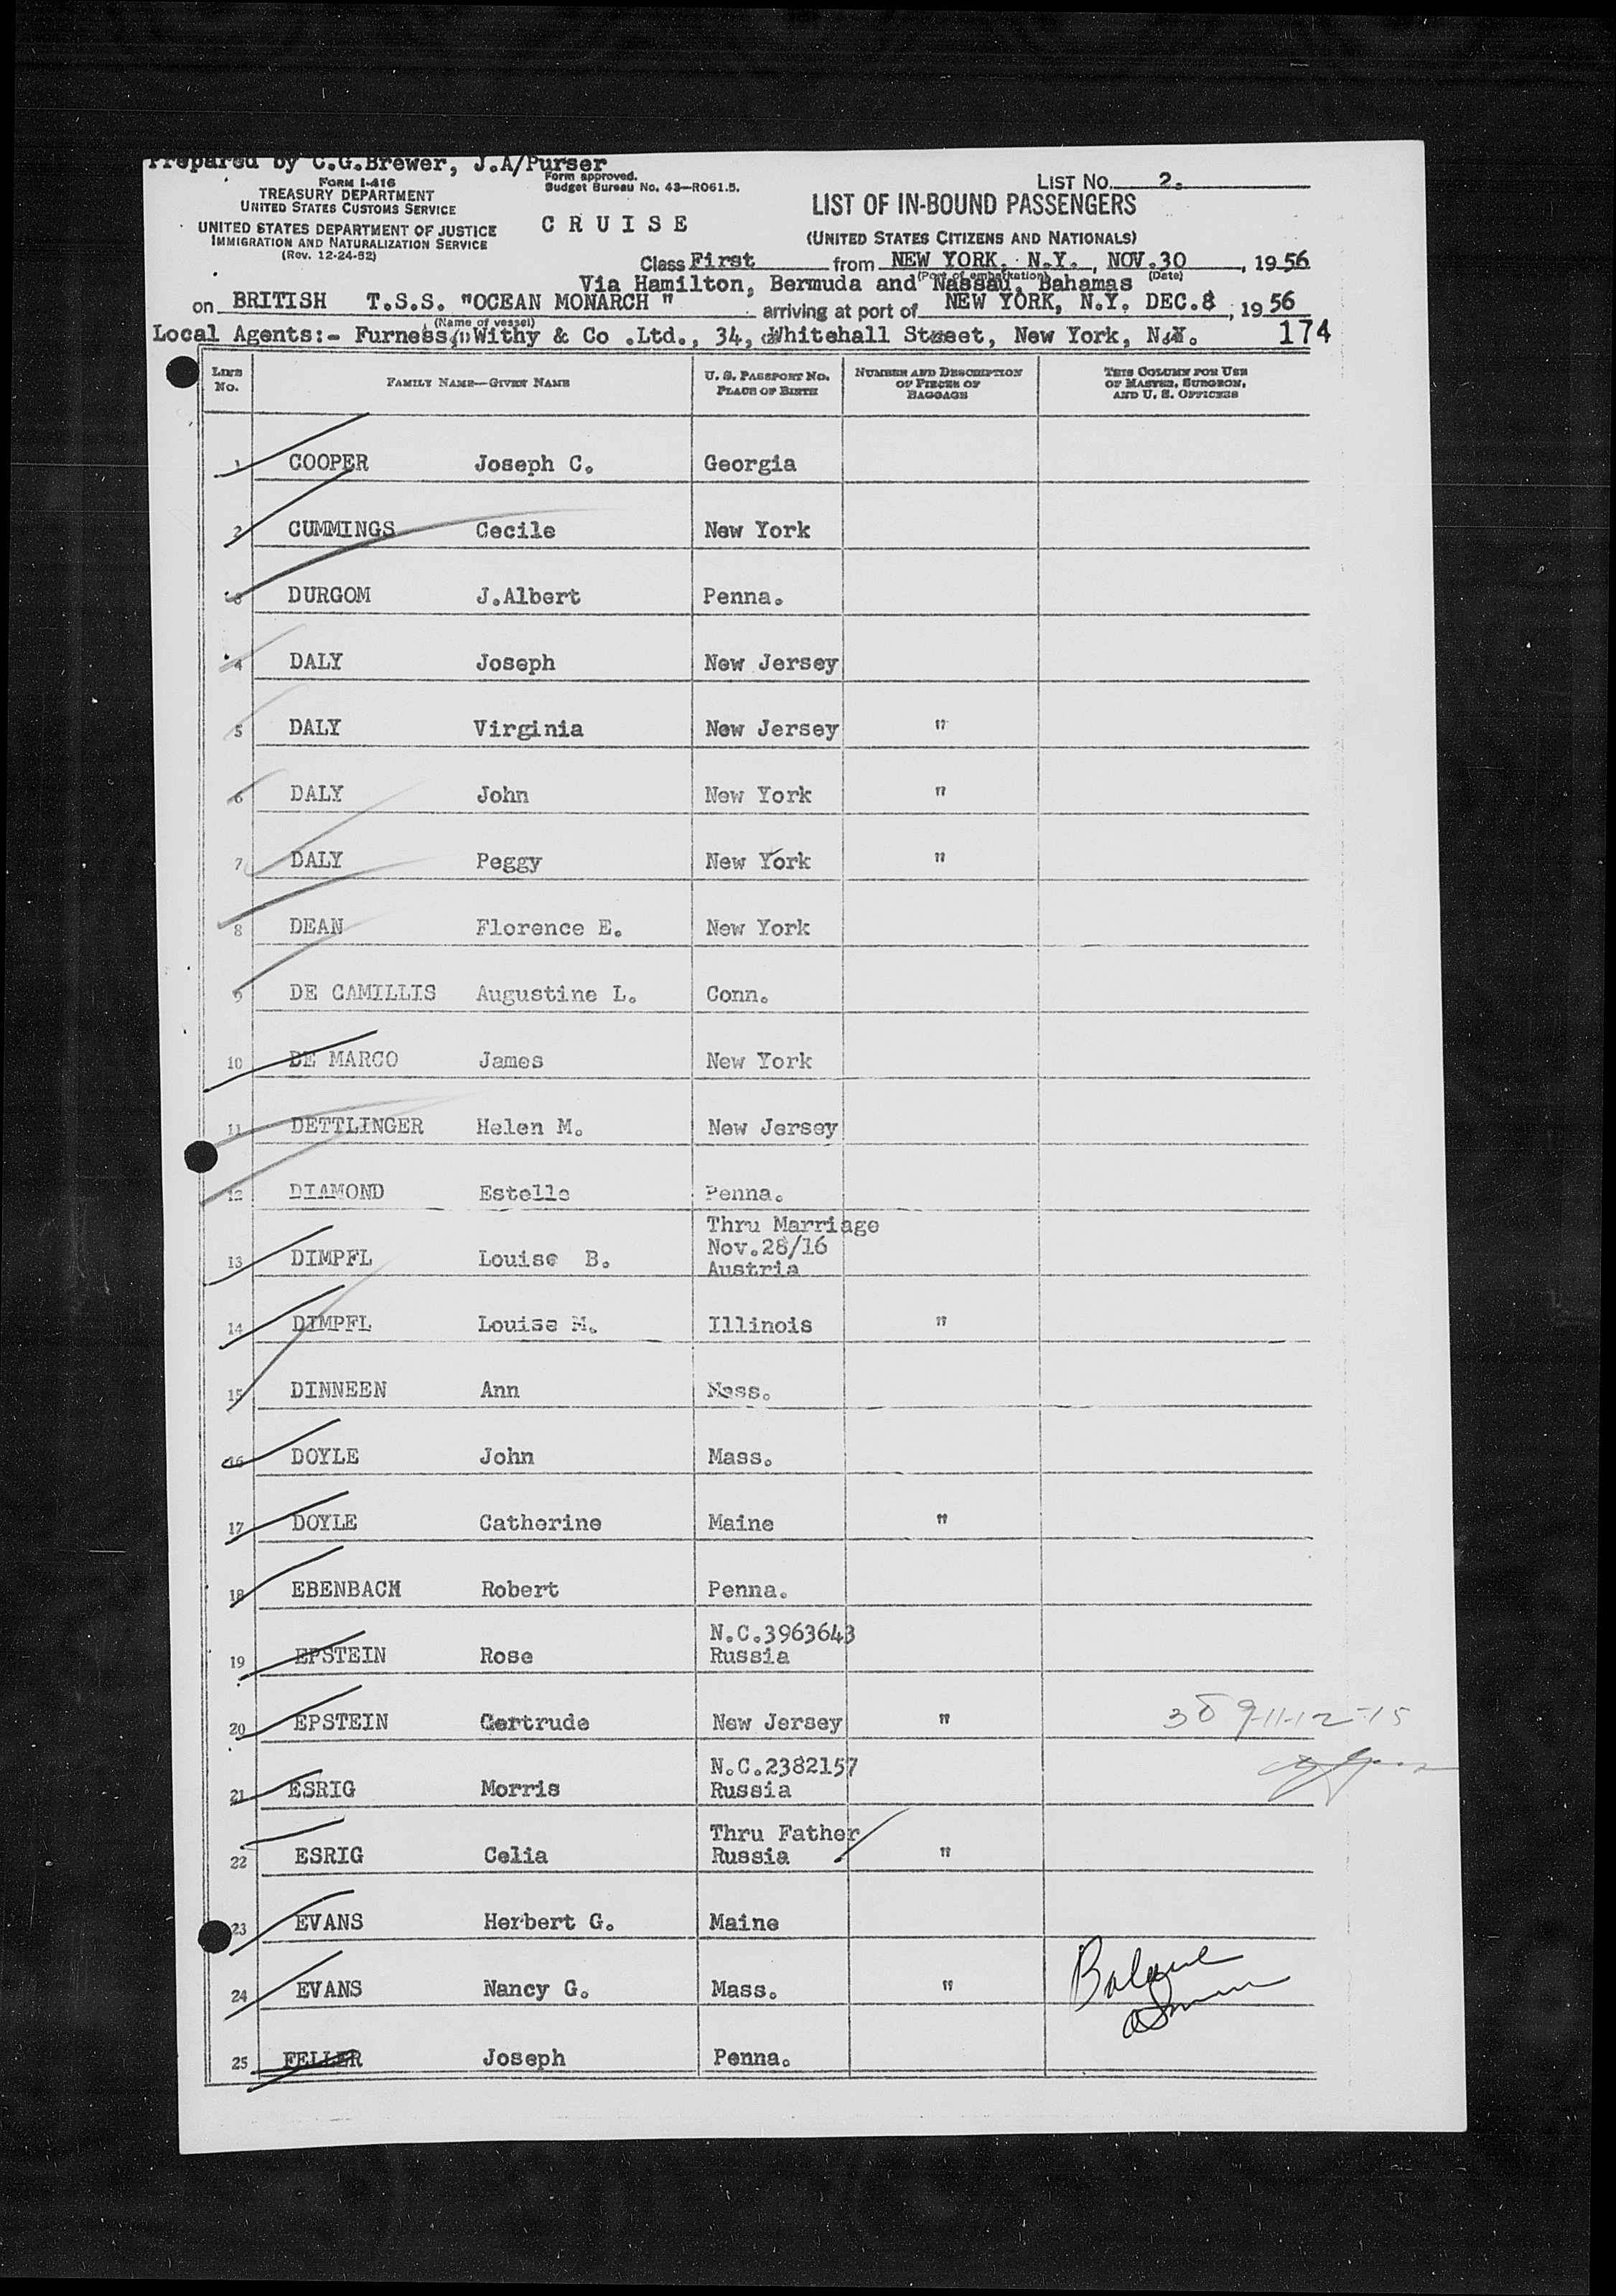 Prepared by C.G.Brewer, J.A/Purser
FORM I-416
TREASURY DEPARTMENT
UNITED STATES CUSTOMS SERVICE
UNITED STATES DEPARTMENT OF JUSTICE
IMMIGRATION AND NATURALIZATION SERVICE
(Rev. 12-24-52)
Form approved.
Budget Bureau No. 43—R061.5.
CRUISE
LIST NO. 2.
LIST OF IN-BOUND PASSENGERS
(UNITED STATES CITIZENS AND NATIONALS)
Class First from NEW YORK. N.Y., NOV.30, 1956
(Port of embarkation) (Date)
Via Hamilton, Bermuda and Nassau, Bahamas
on BRITISH T.S.S. "OCEAN MONARCH" arriving at port of NEW YORK, N.Y. DEC.8, 1956
(Name of vessel)
Local Agents:- Furness, Withy & Co .Ltd., 34, Whitehall Street, New York, N.Y. 174
LINE No. FAMILY NAME—GIVEN NAME U. S. PASSPORT NO. PLACE OF BIRTH NUMBER AND DESCRIPTION OF PIECES OF BAGGAGE THIS COLUMN FOR USE OF MASTER, SURGEON, AND U. S. OFFICERS
1 COOPER Joseph C. Georgia
2 CUMMINGS Cecile New York
3 DURGOM J.Albert Penna.
4 DALY Joseph New Jersey
5 DALY Virginia New Jersey "
6 DALY John New York "
7 DALY Peggy New York "
8 DEAN Florence E. New York
9 DE CAMILLIS Augustine L. Conn.
10 DE MARCO James New York
11 DETTLINGER Helen M. New Jersey
12 DIAMOND Estelle Penna.
Thru Marriage
Nov.28/16
13 DIMPFL Louise B. Austria
14 DIMPFL Louise M. Illinois "
15 DINNEEN Ann Mass.
16 DOYLE John Mass.
17 DOYLE Catherine Maine "
18 EBENBACH Robert Penna.
N.C.3963643
19 EPSTEIN Rose Russia
20 EPSTEIN Gertrude New Jersey "
N.C.2382157
21 ESRIG Morris Russia
Thru Father
22 ESRIG Celia Russia "
23 EVANS Herbert G. Maine
24 EVANS Nancy G. Mass. "
25 FELLER Joseph Penna.